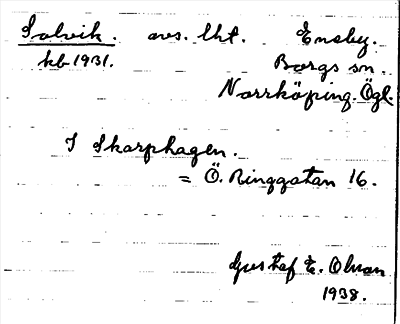 Solvik. avs. lht. Eneby.
kb 1931. Borgs sn.
Norrköping. Ögl.
I Skarphagen.
= Ö. Ringgatan 16.
Gustaf E. Olson
1938.